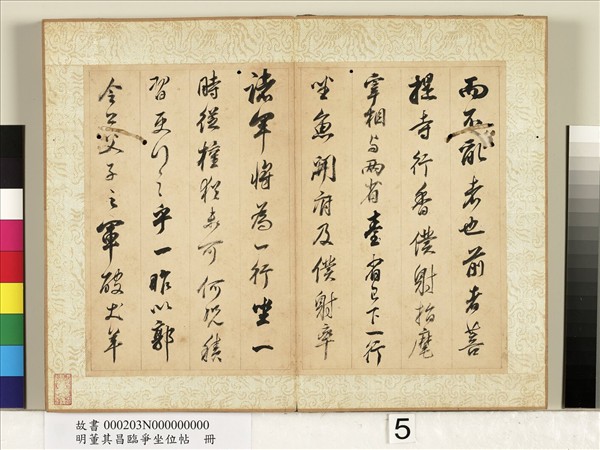 而不能者也前者菩
提寺行香僕射指麾
宰相与兩省臺省已下一行
坐魚開府及僕射率
諸軍將為一行坐一
時從權猶未可何況積
習更行之乎一昨以郭
令公父子之軍破犬羊
故書 000203N000000000
明董其昌臨爭坐位帖 冊
5